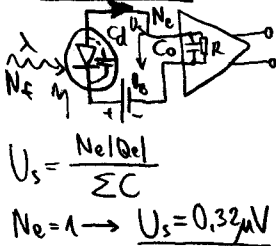 λ
N_f
η
C_d
U_s
N_e
C_0
R
U_B
+ -
U_s = N_e|Q_e| / ΣC
N_e = 1 → U_s = 0,32 μV